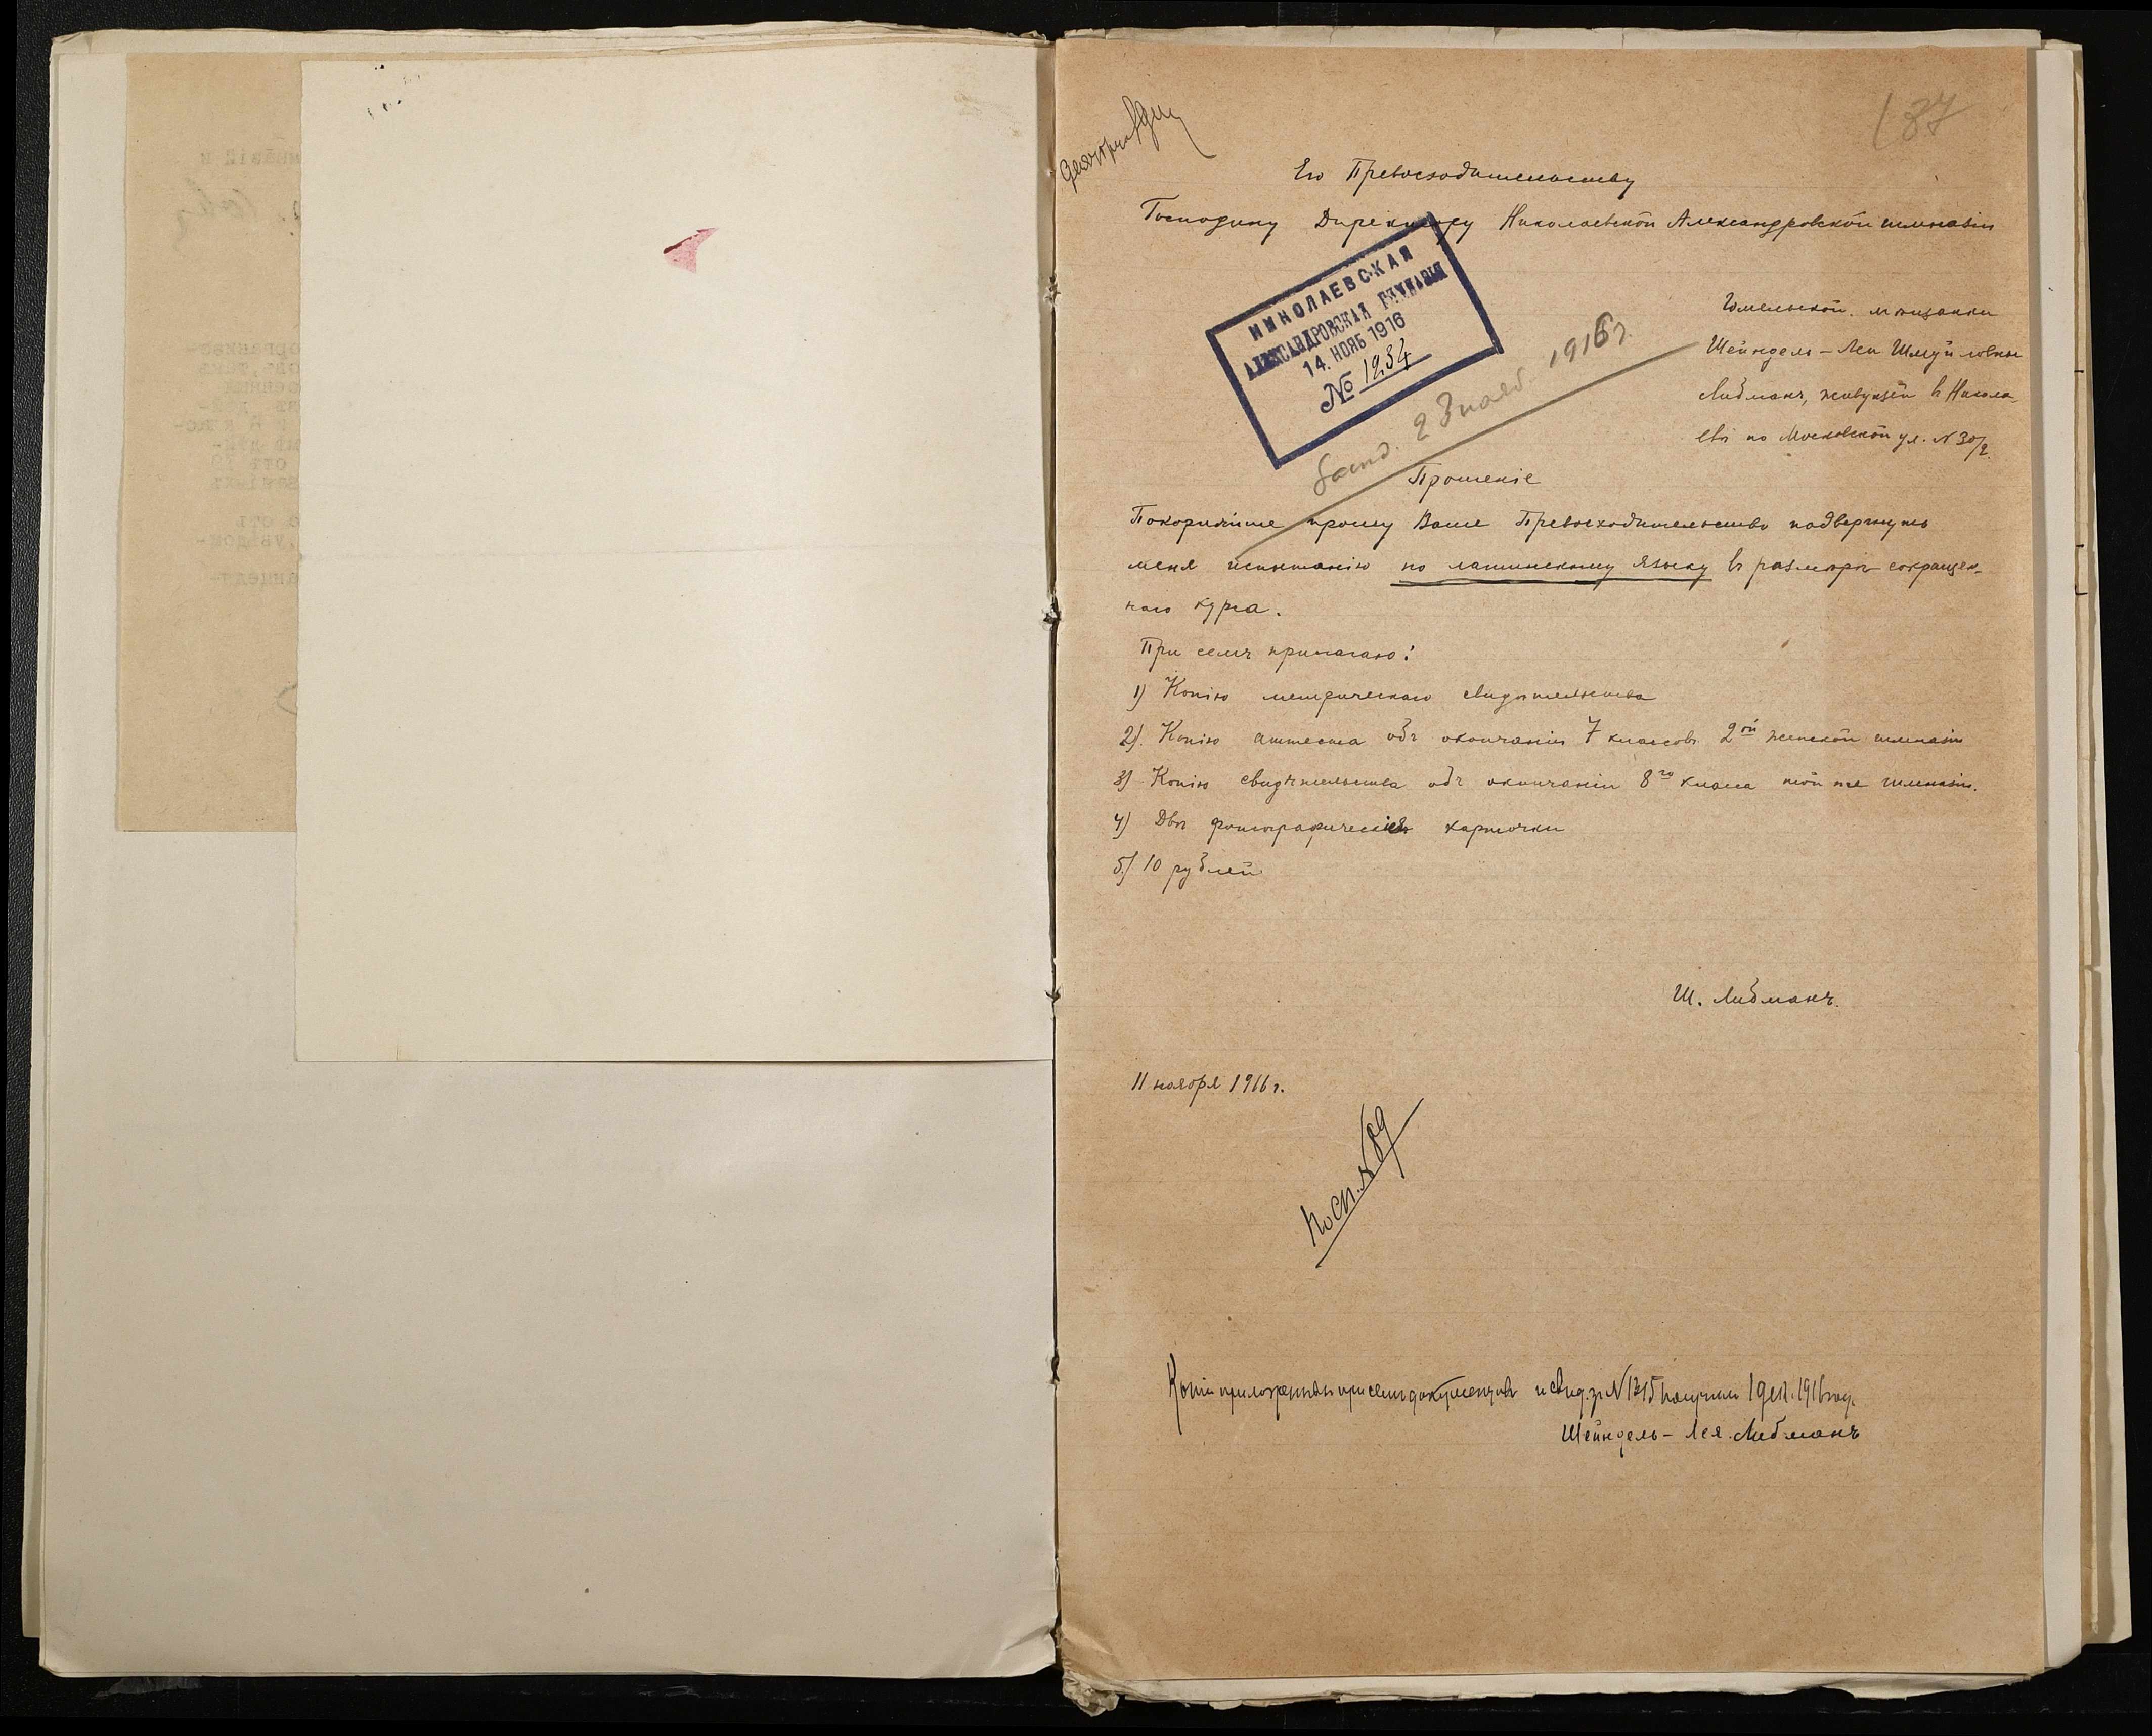 137
Его Превосходительству
Господину Директору Николаевской Александровской гимназіи
НИКОЛАЕВСКАЯ
АЛЕКСАНДРОВСКАЯ ГИМНАЗІЯ
14. НОЯБ 1916
№ 1234
23 нояб. 1916 г.
Гомельской мѣщанки
Шейндель-Леи Шмуйловны
Либманъ, живущей в Никола-
евѣ по Московской ул. № 30/2.
Прошеніе
Покорнѣйше прошу Ваше Превосходительство подвергнуть
меня испытанію по латинскому языку въ размѣрѣ сокращен-
наго курса.
При семъ прилагаю:
1) Копію метрическаго свидѣтельства
2). Копію аттеста объ окончаніи 7 классовъ 2ой женской гимназіи
3) Копію свидѣтельства объ окончаніи 8го класса той же гимназіи.
4) Двѣ фотографическія карточки
5) 10 рублей
Ш. Либманъ.
11 ноября 1916 г.
По сп. № 89
Копіи приложенныхъ при семъ документовъ и свид. за № 1315 получила 1 дек. 1916 год.
Шейндель-Лея Либманъ